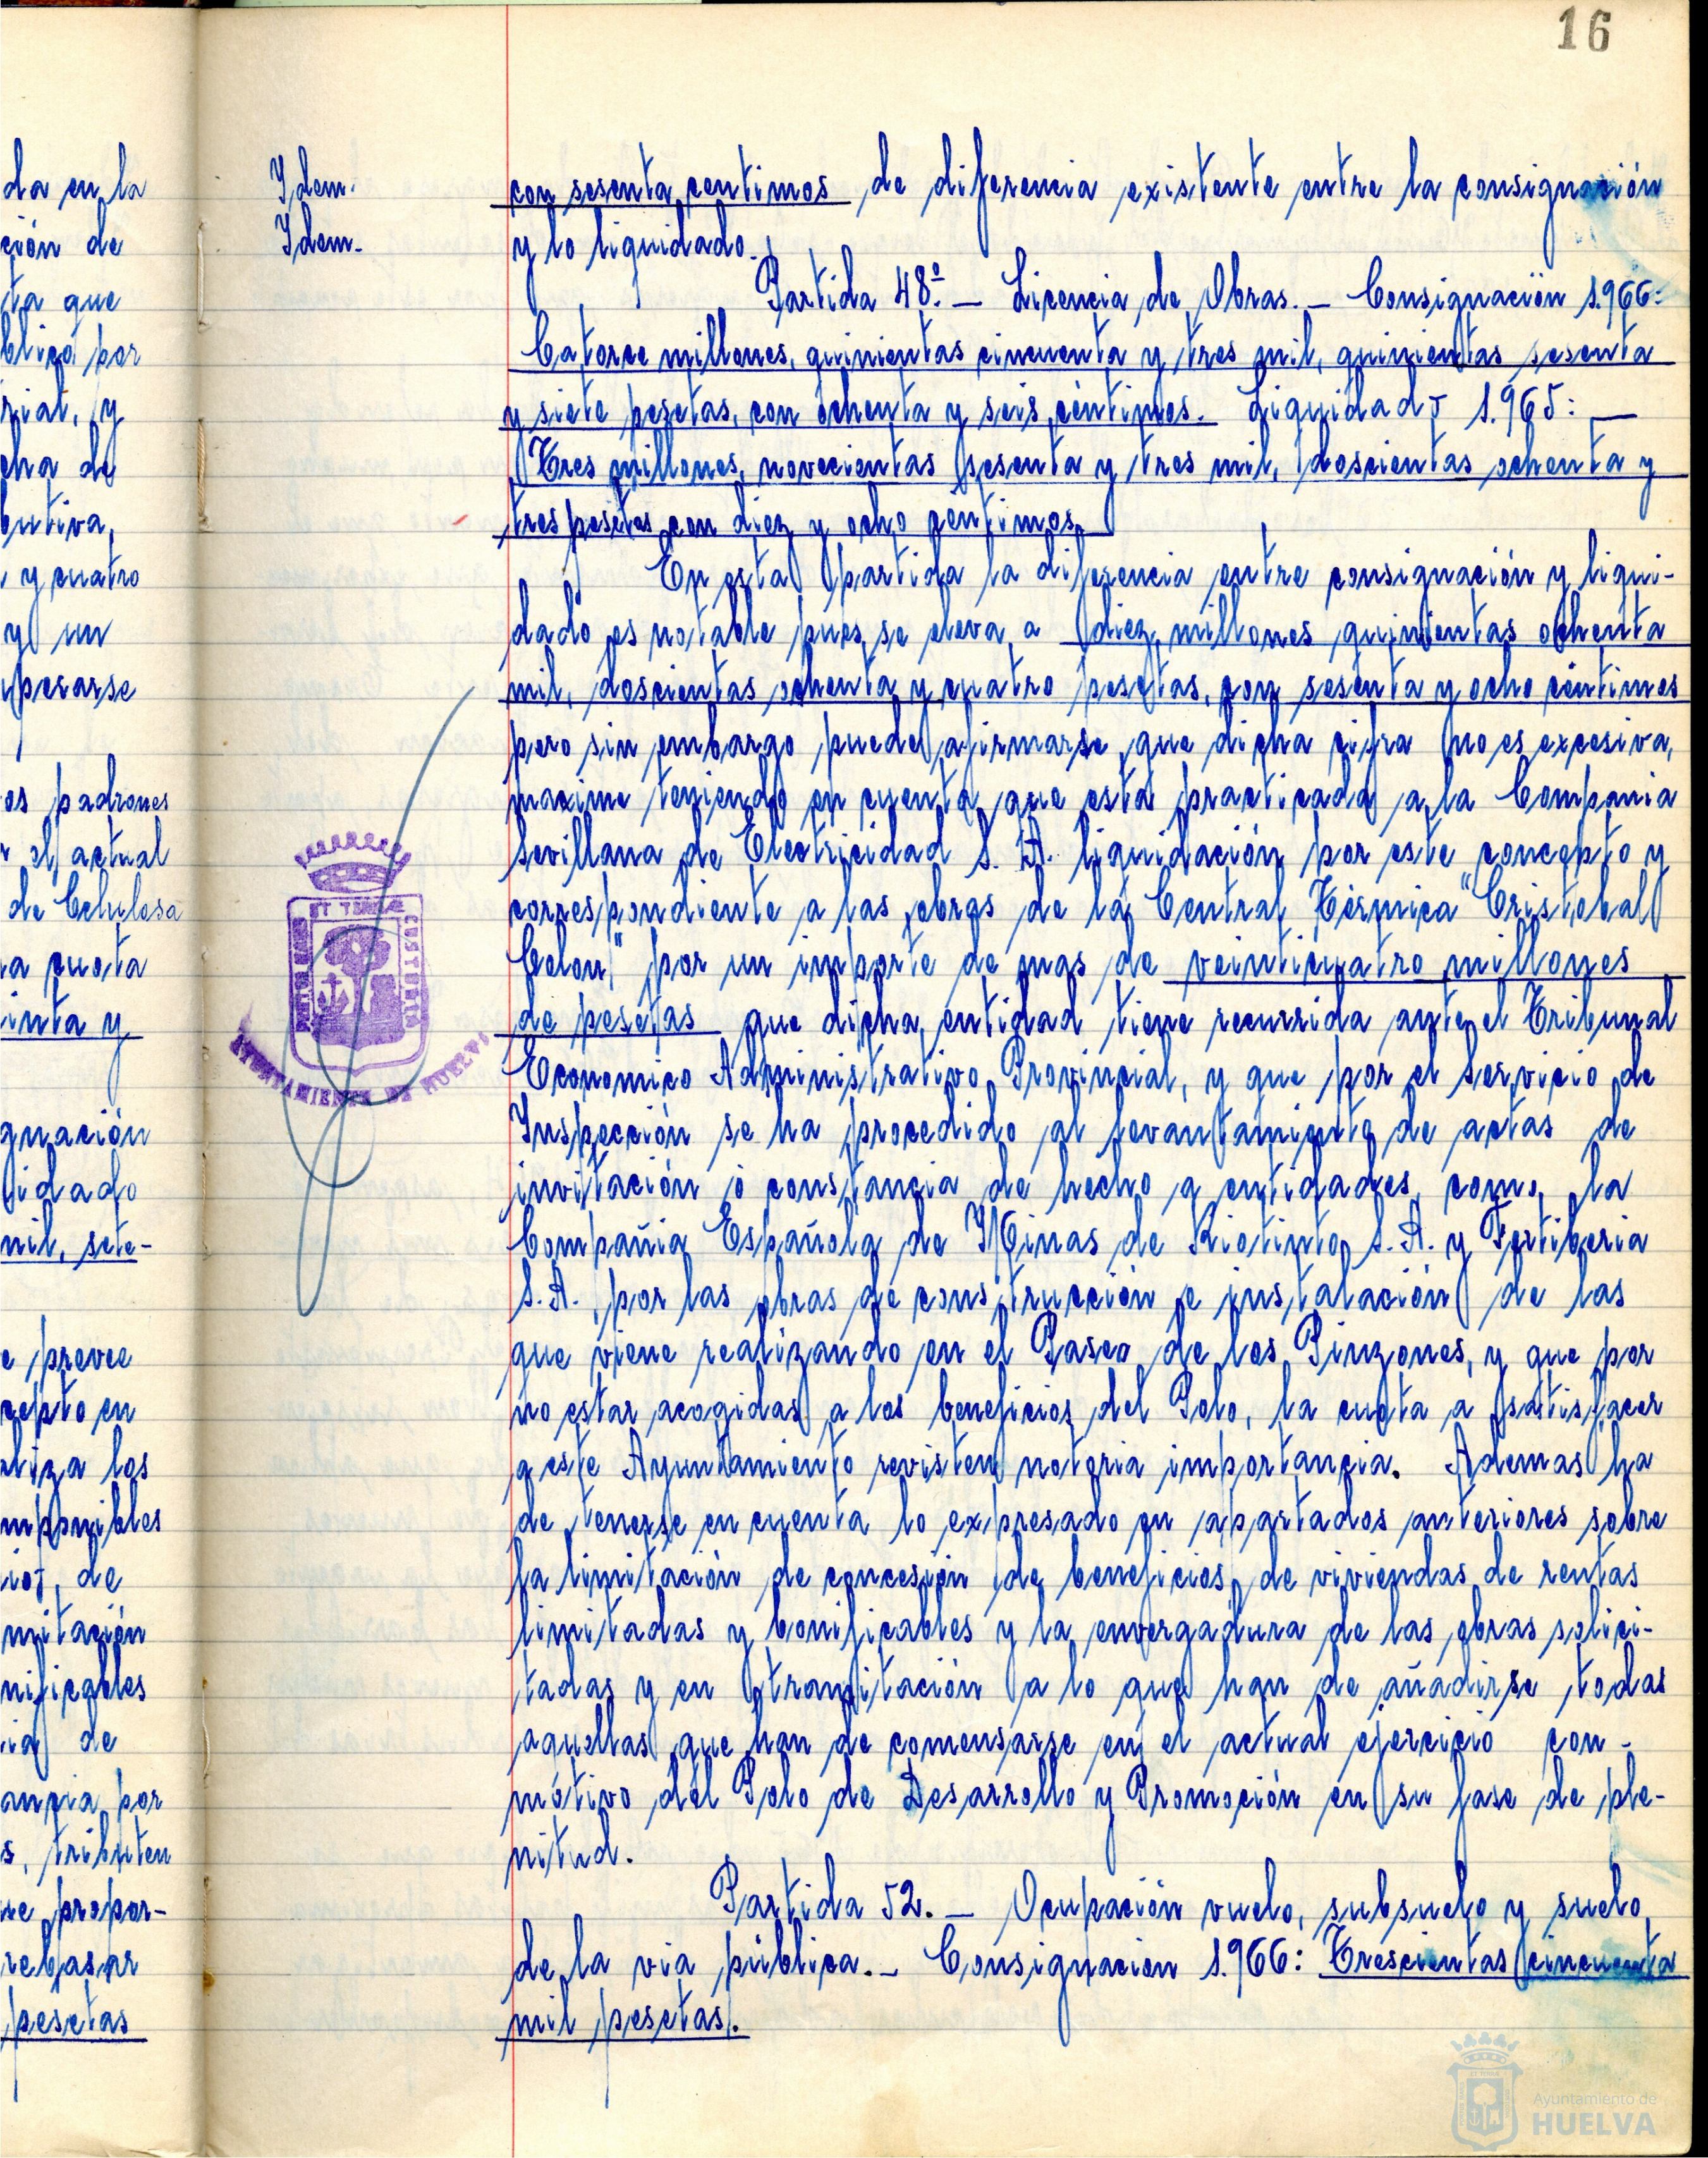 16
da en la
ción de
ta que
blica por
rial, y
cha de
butiva,
y cuatro
y un
perarse
os padrones
el actual
de Celulosa
a cuota
inta y
gnación
idado
mil, sete-
e prevee
cepto en
aliza los
mponibles
de
mitación
nificables
ia de
ancia por
s, tributen
ue propor-
rebasar
pesetas
Idem.
Idem.
con sesenta centimos de diferencia existente entre la consignación
y lo liquidado.
Partida 48ª.- Licencia de Obras.- Consignación 1.966:
Catorce millones, quinientas cincuenta y tres mil, quinientas sesenta
y siete pesetas, con ochenta y seis céntimos. Liquidado 1.965: —
Tres millones, novecientas sesenta y tres mil, doscientas ochenta y
tres pesetas con diez y ocho céntimos.
En esta partida la diferencia entre consignación y liqui-
dado es notable pues se eleva a diez millones quinientas ochenta
mil, doscientas ochenta y cuatro pesetas, con sesenta y ocho céntimos
pero sin embargo puede afirmarse que dicha cifra no es excesiva,
maxime teniendo en cuenta que está practicada a la Compania
Sevillana de Electricidad S. A. liquidación por este concepto y
correspondiente a las obras de la Central Térmica "Cristobal
Colon," por un importe de mas de veinticuatro millones
de pesetas que dicha entidad tiene recurrida ante el Tribunal
Economico Administrativo Provincial, y que por el Servicio de
Inspección se ha procedido al levantamiento de actas de
invitación ó constancia de hecho a entidades como la
Compañia Española de Minas de Riotinto S.A. y Fertiberia
S.A., por las obras de construcción e instalación de las
que viene realizando en el Paseo de los Pinzones, y que por
no estar acogidas a los beneficios del Polo, la cuota a satisfacer
a este Ayuntamiento revisten notoria importancia. Ademas ha
de tenerse en cuenta lo expresado en apartados anteriores sobre
la limitación de concesión de beneficios de viviendas de rentas
limitadas y bonificables y la envergadura de las obras solici-
tadas y en tramitación a lo que han de añadirse todas
aquellas que han de comensarse en el actual ejercicio con-
motivo del Polo de Desarrollo y Promoción en su fase de ple-
nitud.
Partida 52.- Ocupación vuelo, subsuelo y suelo,
de la via pública.- Consignacion 1.966: Trescientas cincuenta
mil pesetas.
PORTUS MARIS
ET TERRAE
CUSTODIA
AYUNTAMIENTO DE HUELVA
Ayuntamiento de
HUELVA